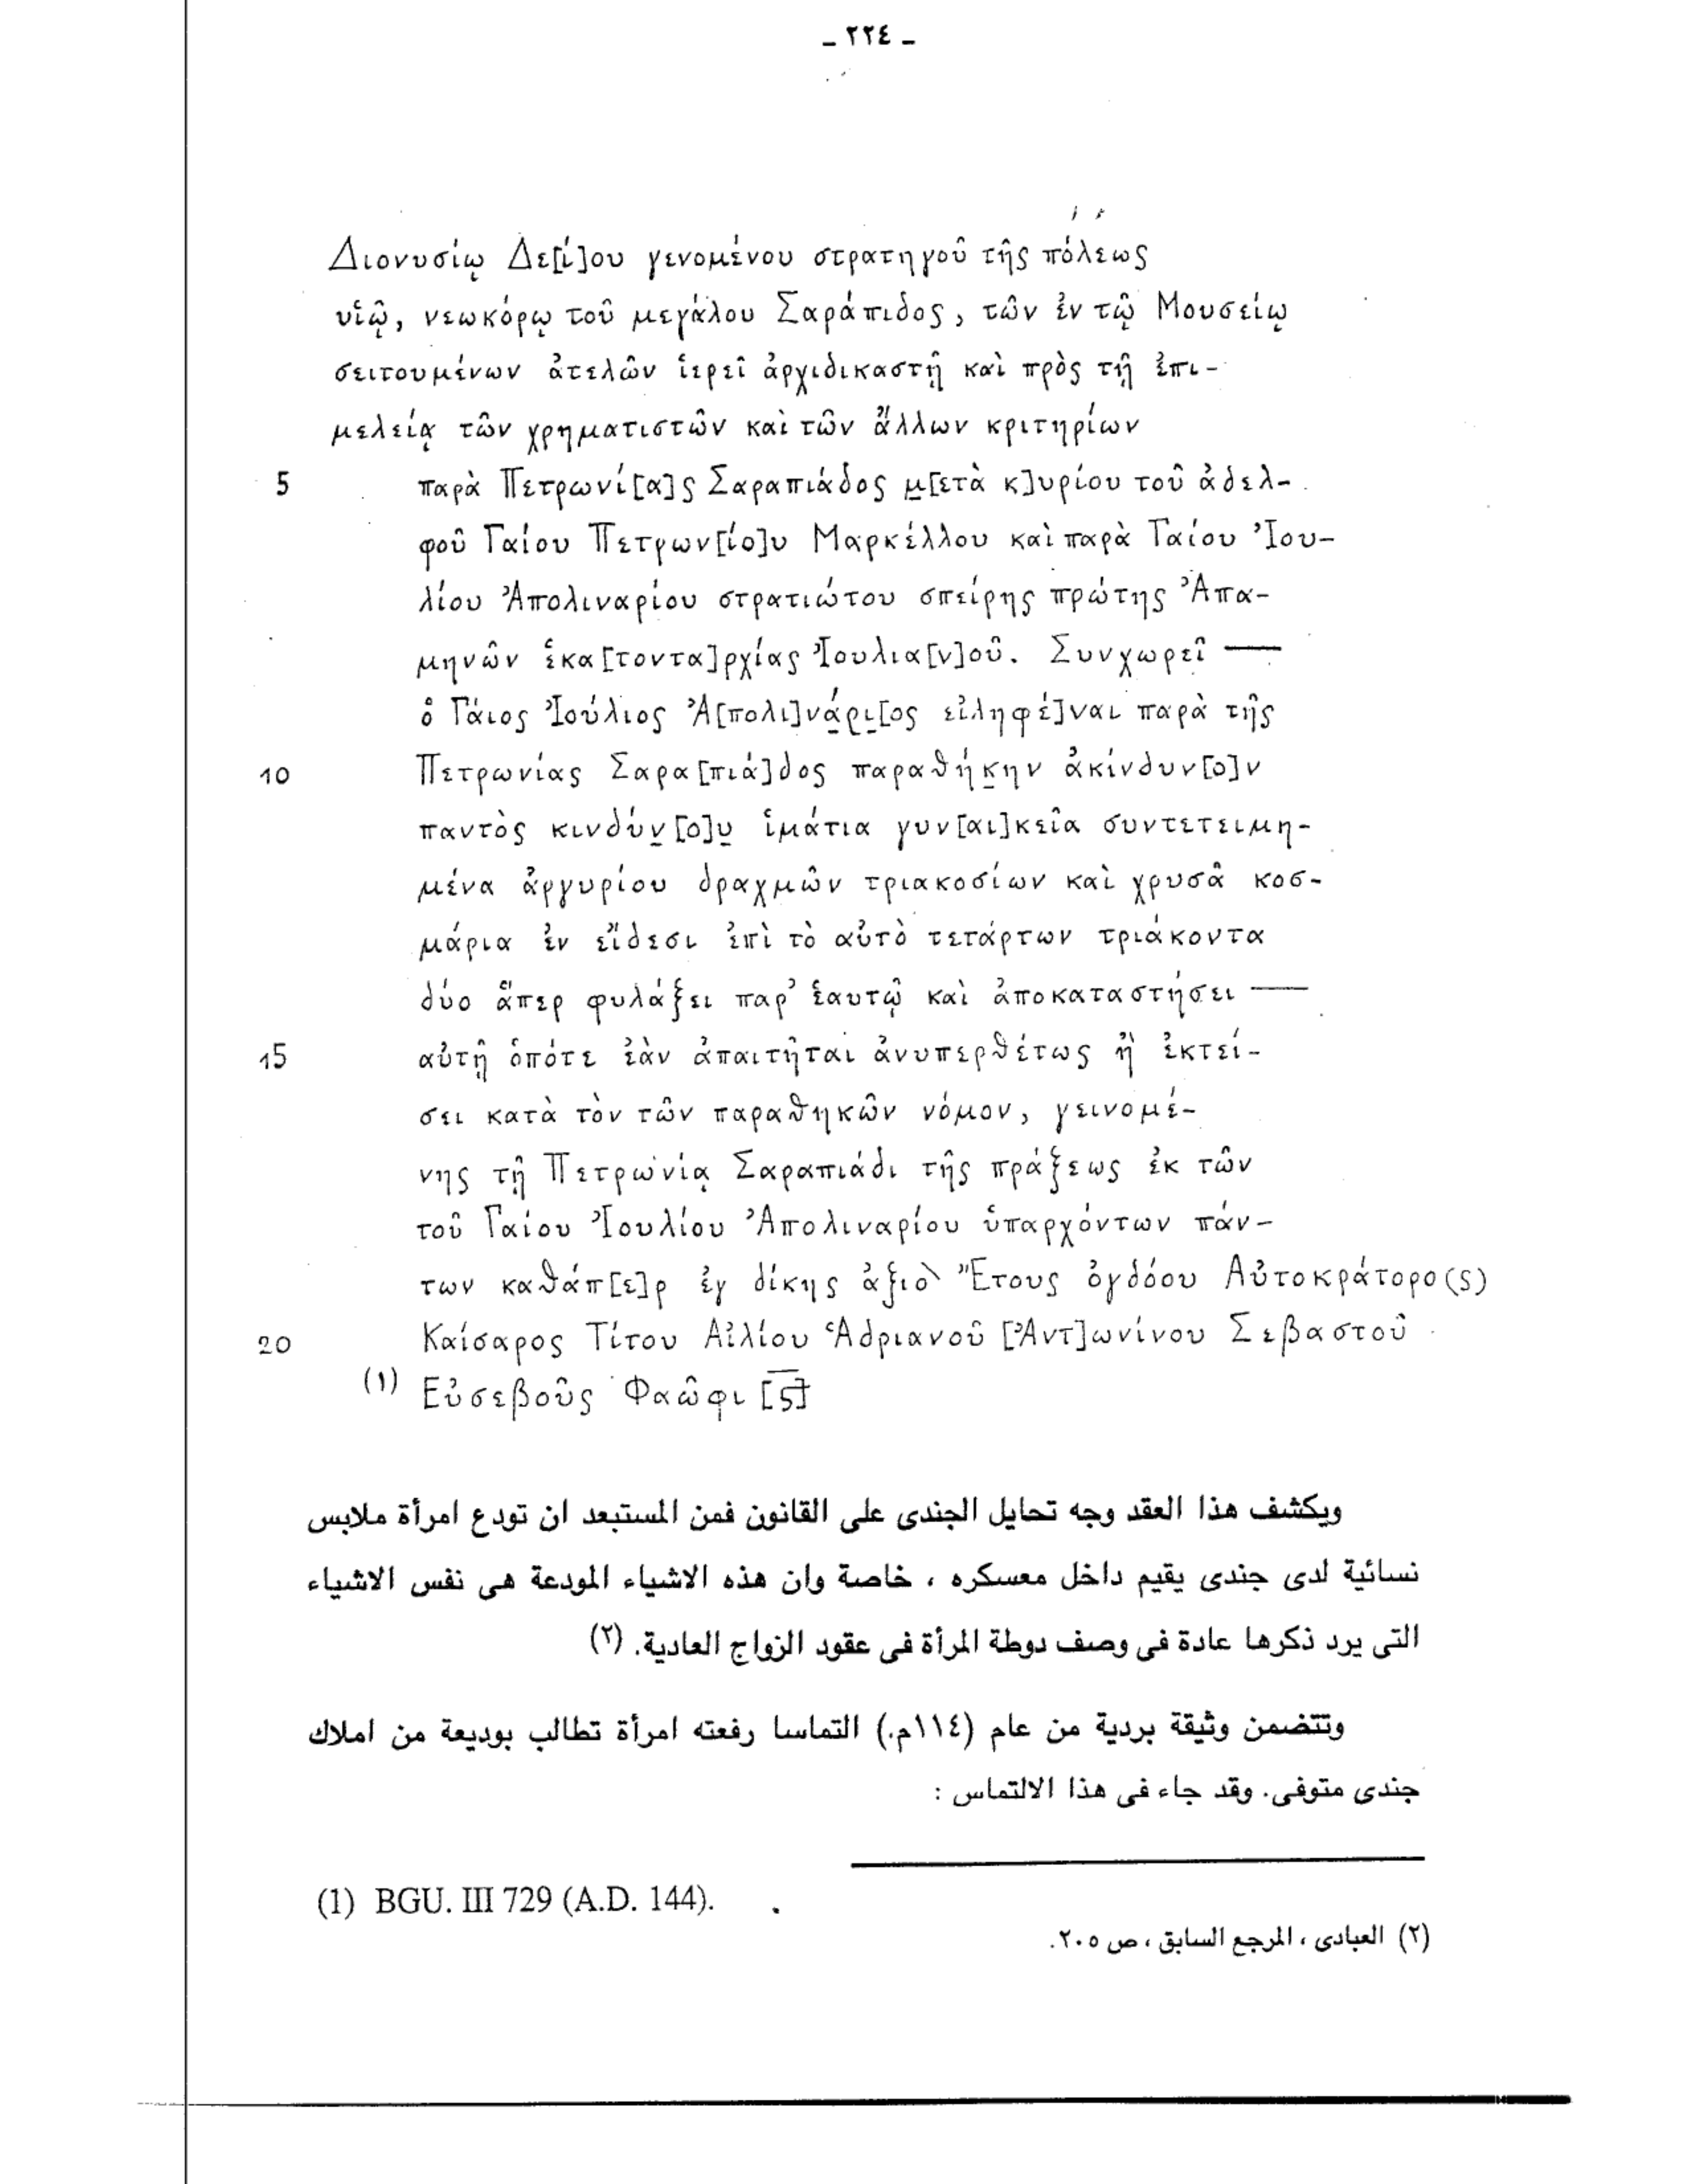 - ٢٢٤ -
Διονυσίῳ Δε[ί]ου γενομένου στρατηγοῦ τῆς πόλεως
υἱῷ, νεωκόρῳ τοῦ μεγάλου Σαράπιδος, τῶν ἐν τῷ Μουσείῳ
σειτουμένων ἀτελῶν ἱερεῖ ἀρχιδικαστῇ καὶ πρὸς τῇ ἐπι-
μελείᾳ τῶν χρηματιστῶν καὶ τῶν ἄλλων κριτηρίων
5 παρὰ Πετρωνί[α]ς Σαραπιάδος μ̣[ετὰ κ]υρίου τοῦ ἀδελ-
φοῦ Γαίου Πετρων[ίο]υ Μαρκέλλου καὶ παρὰ Γαίου Ἰου-
λίου Ἀπολιναρίου στρατιώτου σπείρης πρώτης Ἀπα-
μηνῶν ἑκα[τοντα]ρχίας Ἰουλια[ν]οῦ. Συνχωρεῖ —
ὁ Γάιος Ἰούλιος Ἀ[πολι]νά̣ρι̣[ος εἰληφέ]ναι παρὰ τῆς
10 Πετρωνίας Σαρα[πιά]δος παραθήκ̣ην ἀκίνδυν[ο]ν
παντὸς κινδύν̣[ο]υ̣ ἱμάτια γυν[αι]κεῖα συντετειμη-
μένα ἀργυρίου δραχμῶν τριακοσίων καὶ χρυσᾶ κοσ-
μάρια ἐν εἴδεσι ἐπὶ τὸ αὐτὸ τετάρτων τριάκοντα
δύο ἅπερ φυλάξει παρ' ἑαυτῷ καὶ ἀποκαταστήσει —
15 αὐτῇ ὁπότε ἐὰν ἀπαιτῆται ἀνυπερθέτως ἢ ἐκτεί-
σει κατὰ τὸν τῶν παραθηκῶν νόμον, γεινομέ-
νης τῇ Πετρωνίᾳ Σαραπιάδι τῆς πράξεως ἐκ τῶν
τοῦ Γαίου Ἰουλίου Ἀπολιναρίου ὑπαρχόντων πάν-
των καθάπ[ε]ρ ἐγ δίκης ἀξιο\ Ἔτους ὀγδόου Αὐτοκράτορο(ς)
20 Καίσαρος Τίτου Αἰλίου Ἁδριανοῦ [Ἀντ]ωνίνου Σεβαστοῦ
(١) Εὐσεβοῦς Φαῶφι [ς̅]
ويكشف هذا العقد وجه تحايل الجندى على القانون فمن المستبعد ان تودع امرأة ملابس
نسائية لدى جندى يقيم داخل معسكره ، خاصة وان هذه الاشياء المودعة هى نفس الاشياء
التى يرد ذكرها عادة فى وصف دوطة المرأة فى عقود الزواج العادية. (٢)
وتتضمن وثيقة بردية من عام (١١٤م.) التماسا رفعته امرأة تطالب بوديعة من املاك
جندى متوفى. وقد جاء فى هذا الالتماس :
(1) BGU. III 729 (A.D. 144).
(٢) العبادى ، المرجع السابق ، ص ٢٠٥.